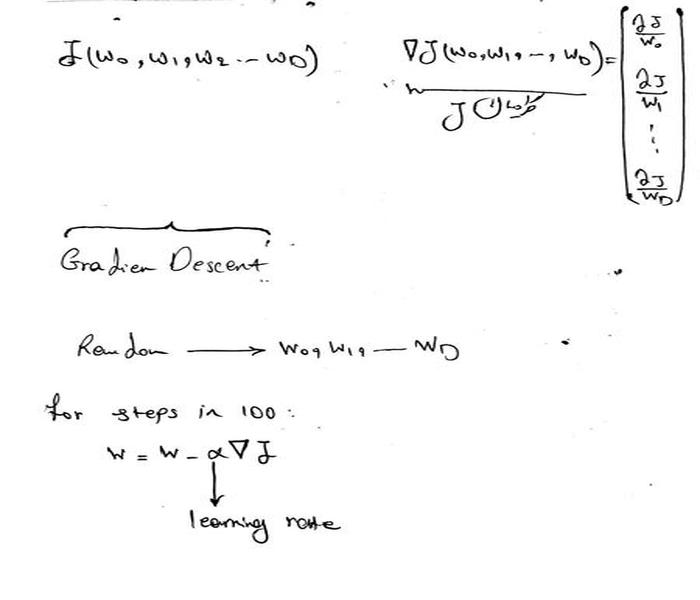 J(w₀, w₁, w₂ ... w_D)
∇J(w₀, w₁, -, w_D) = [∂J/w₀ ∂J/w₁ ⋮ ∂J/w_D]
w
گرادیان J
Gradien Descent
Random → w₀, w₁, — w_D
for steps in 100:
w = w - α∇J
learning rate